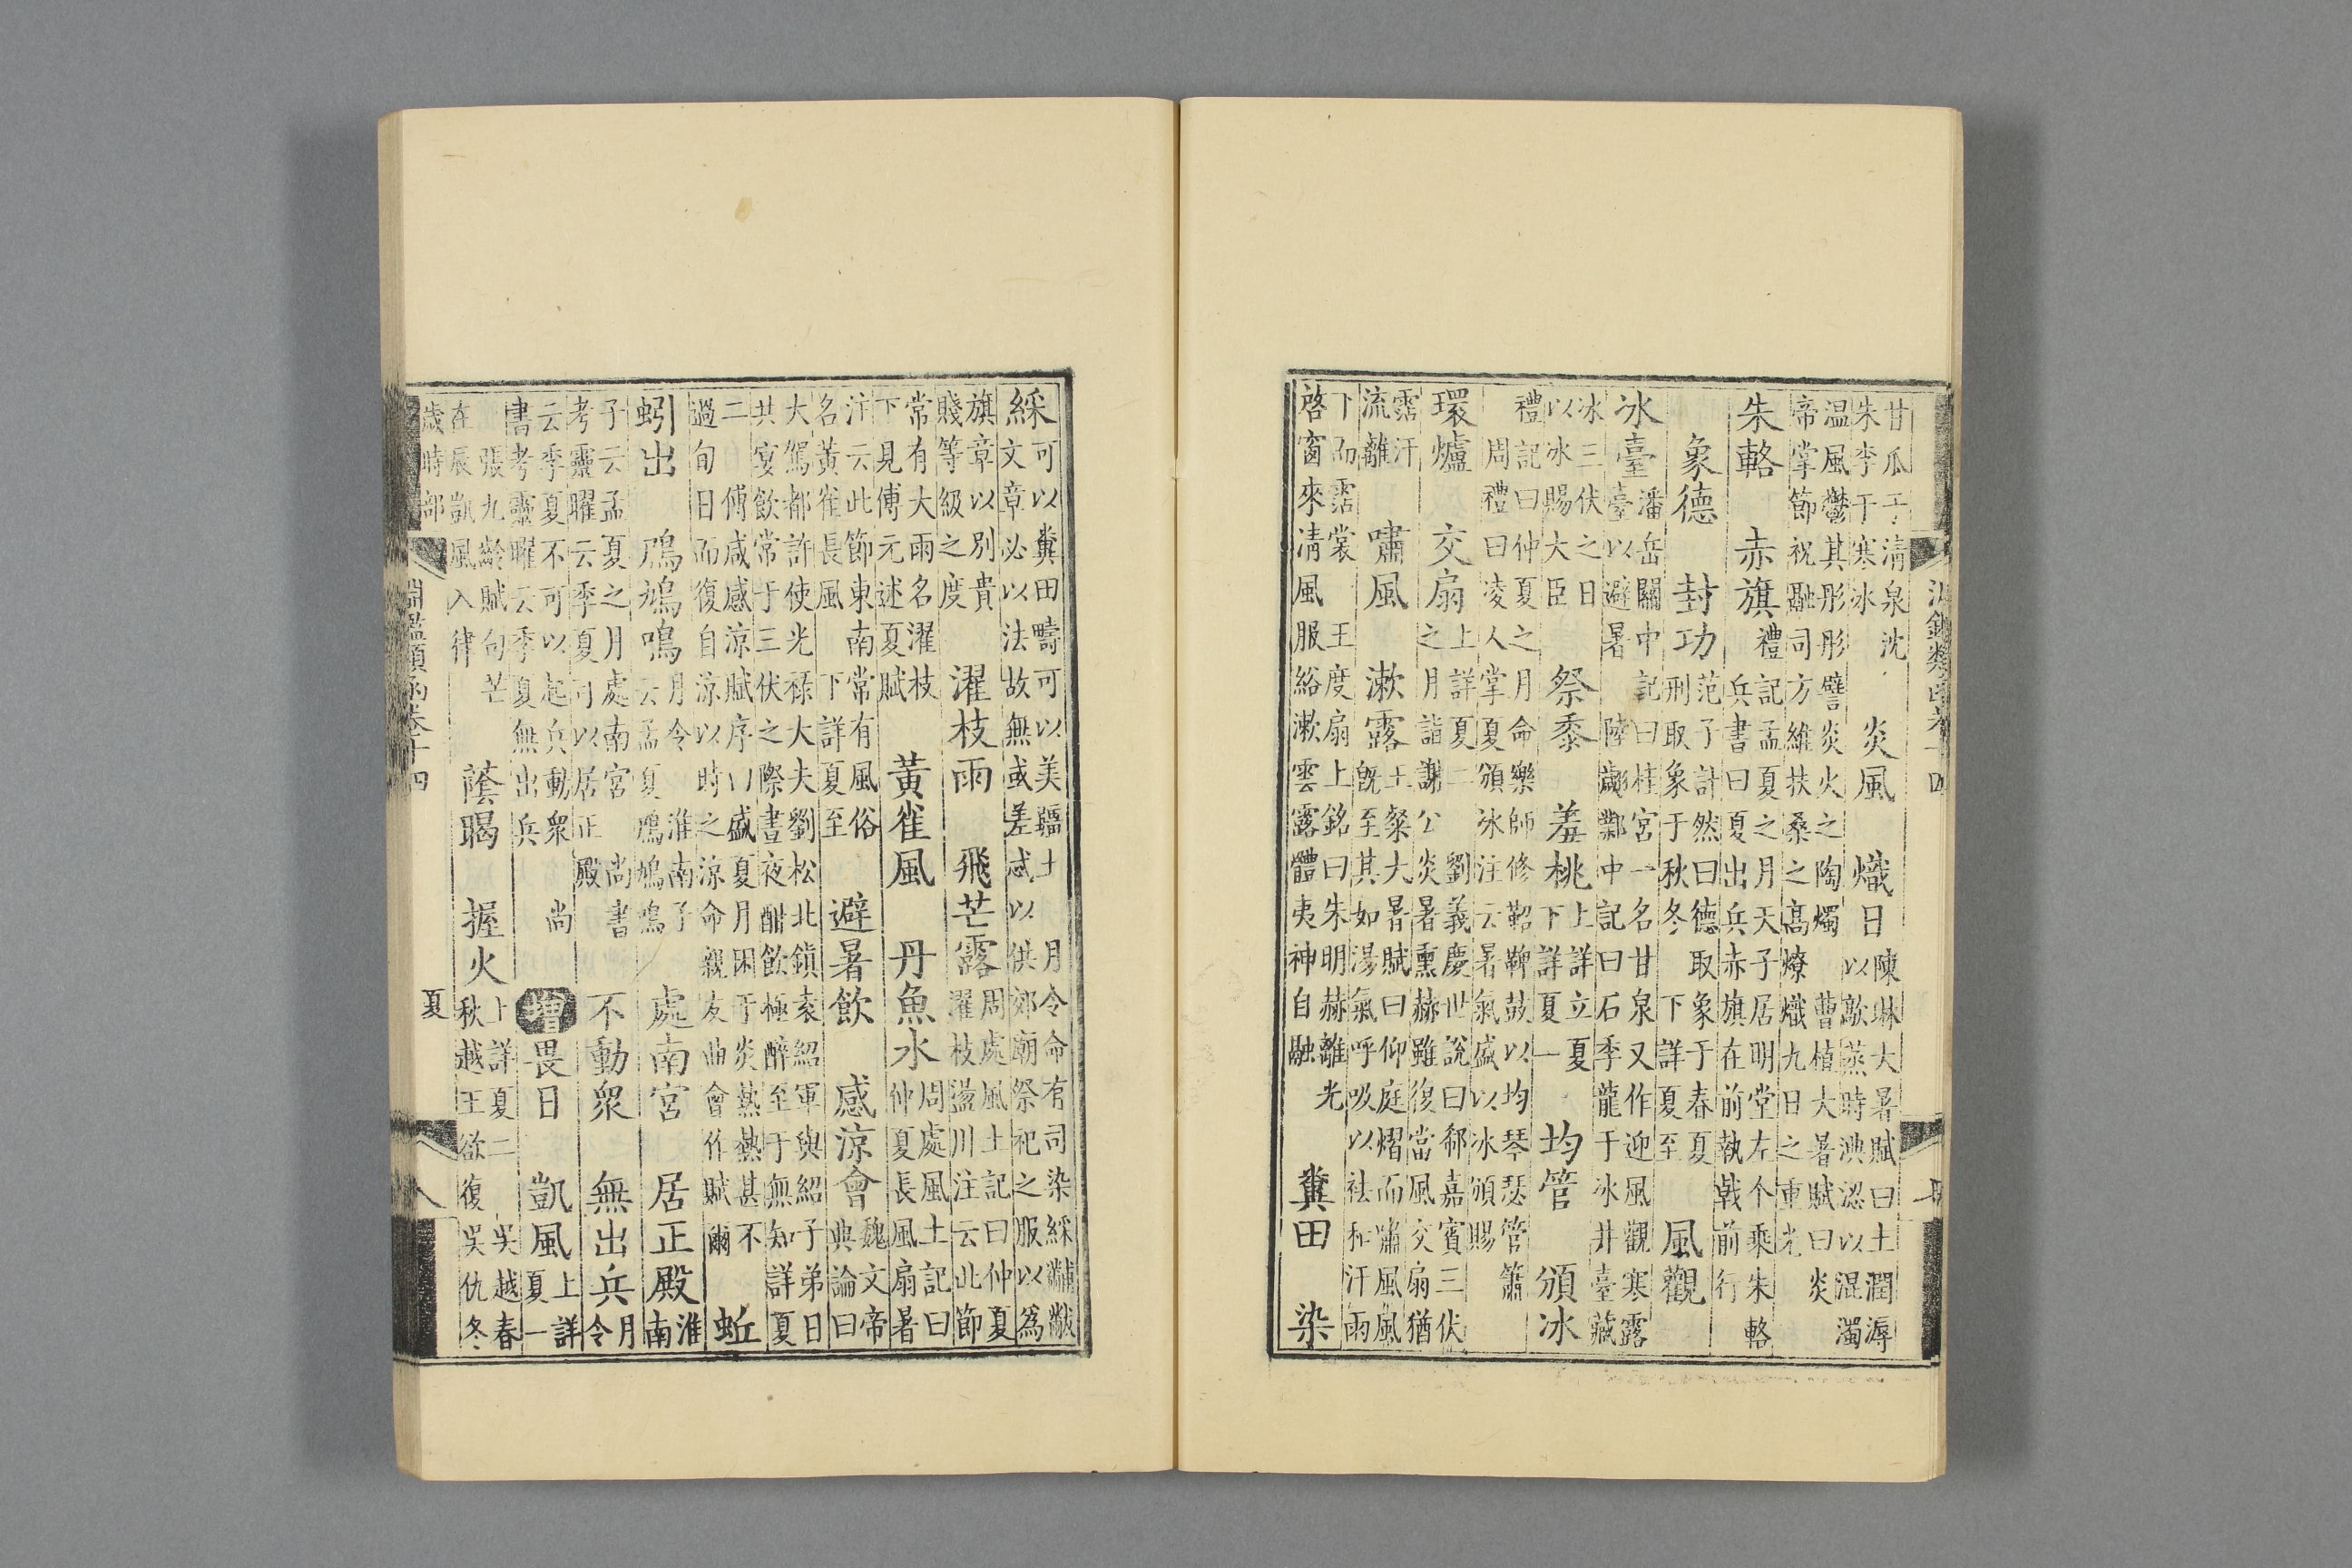 甘瓜于清泉沈朱李于寒冰 炎風 熾日 陳琳大暑賦曰土潤溽以歊蒸時淟涊以溷濁
温風鬱其彤彤譬炎火之陶燭 曹植大暑賦曰炎帝掌節祝融司方維扶桑之高燎熾九日之重光
朱輅 赤旗 禮記孟夏之月天子居明堂左个乘朱輅 兵書曰夏出兵赤旗在前執戟前行
象德 封功 范子計然曰德取象于春夏刑取象于秋冬 下詳夏至 風觀
冰臺 潘岳關中記曰桂宮一名甘泉又作迎風觀寒露臺以避暑 陸翽鄴中記曰石季龍于冰井臺藏
冰三伏之日以冰賜大臣 祭黍 羞桃 上詳立夏 下詳夏一 均管 頒冰
禮記曰仲夏之月命樂師修鞀鞞鼓以均琴瑟管簫 周禮曰凌人掌夏頒冰注云暑氣盛以冰頒賜
環爐 交扇 上詳夏二 劉義慶世說曰郗嘉賓三伏之月詣謝公炎暑熏赫雖復當風交扇猶
霑汗流離 嘯風 漱露 王粲大暑賦曰仰庭熠而嘯風風既至其如湯氣呼吸以袪和汗雨
下而霑裳 王度扇上銘曰朱明赫離光啓窗來清風服綌漱雲露體夷神自融 糞田 染
綵 可以糞田疇可以美疆土 月令命有司染綵黼黻文章必以法故無或差忒以供郊廟祭祀之服以為
旗章以別貴賤等級之度 濯枝雨 飛芒露 周處風土記曰仲夏濯枝盪川注云此節
常有大雨名濯枝 下見傅元述夏賦 黃雀風 丹魚水 周處風土記曰仲夏長風扇暑
注云此節東南常有風俗名黃雀長風 下詳夏至 避暑飲 感涼會 魏文帝典論曰
大駕都許使光祿大夫劉松北鎮袁紹軍與紹子弟日共宴飲常于三伏之際晝夜酣飲極醉至于無知 詳夏
二 傅咸感涼賦序曰盛夏月困于炎熱熱甚不過旬日而復自涼以時之涼命親友曲會作賦爾 蚯
蚓出 鳲鳩鳴 月令 淮南子云孟夏鳲鳩鳴 處南宮 居正殿 淮南
子云孟夏之月處南宮 尚書考靈曜云季夏可以居正殿 不動眾 無出兵 月令
云季夏不可以起兵動衆 尚書考靈曜云季夏無出兵 增 畏日 凱風 上詳夏一
張九齡賦句芒在辰凱風入律 蔭暍 握火 上詳夏二 吳越春秋越王欲復吳仇冬
歲時部 淵鑑類函卷十四 夏 八